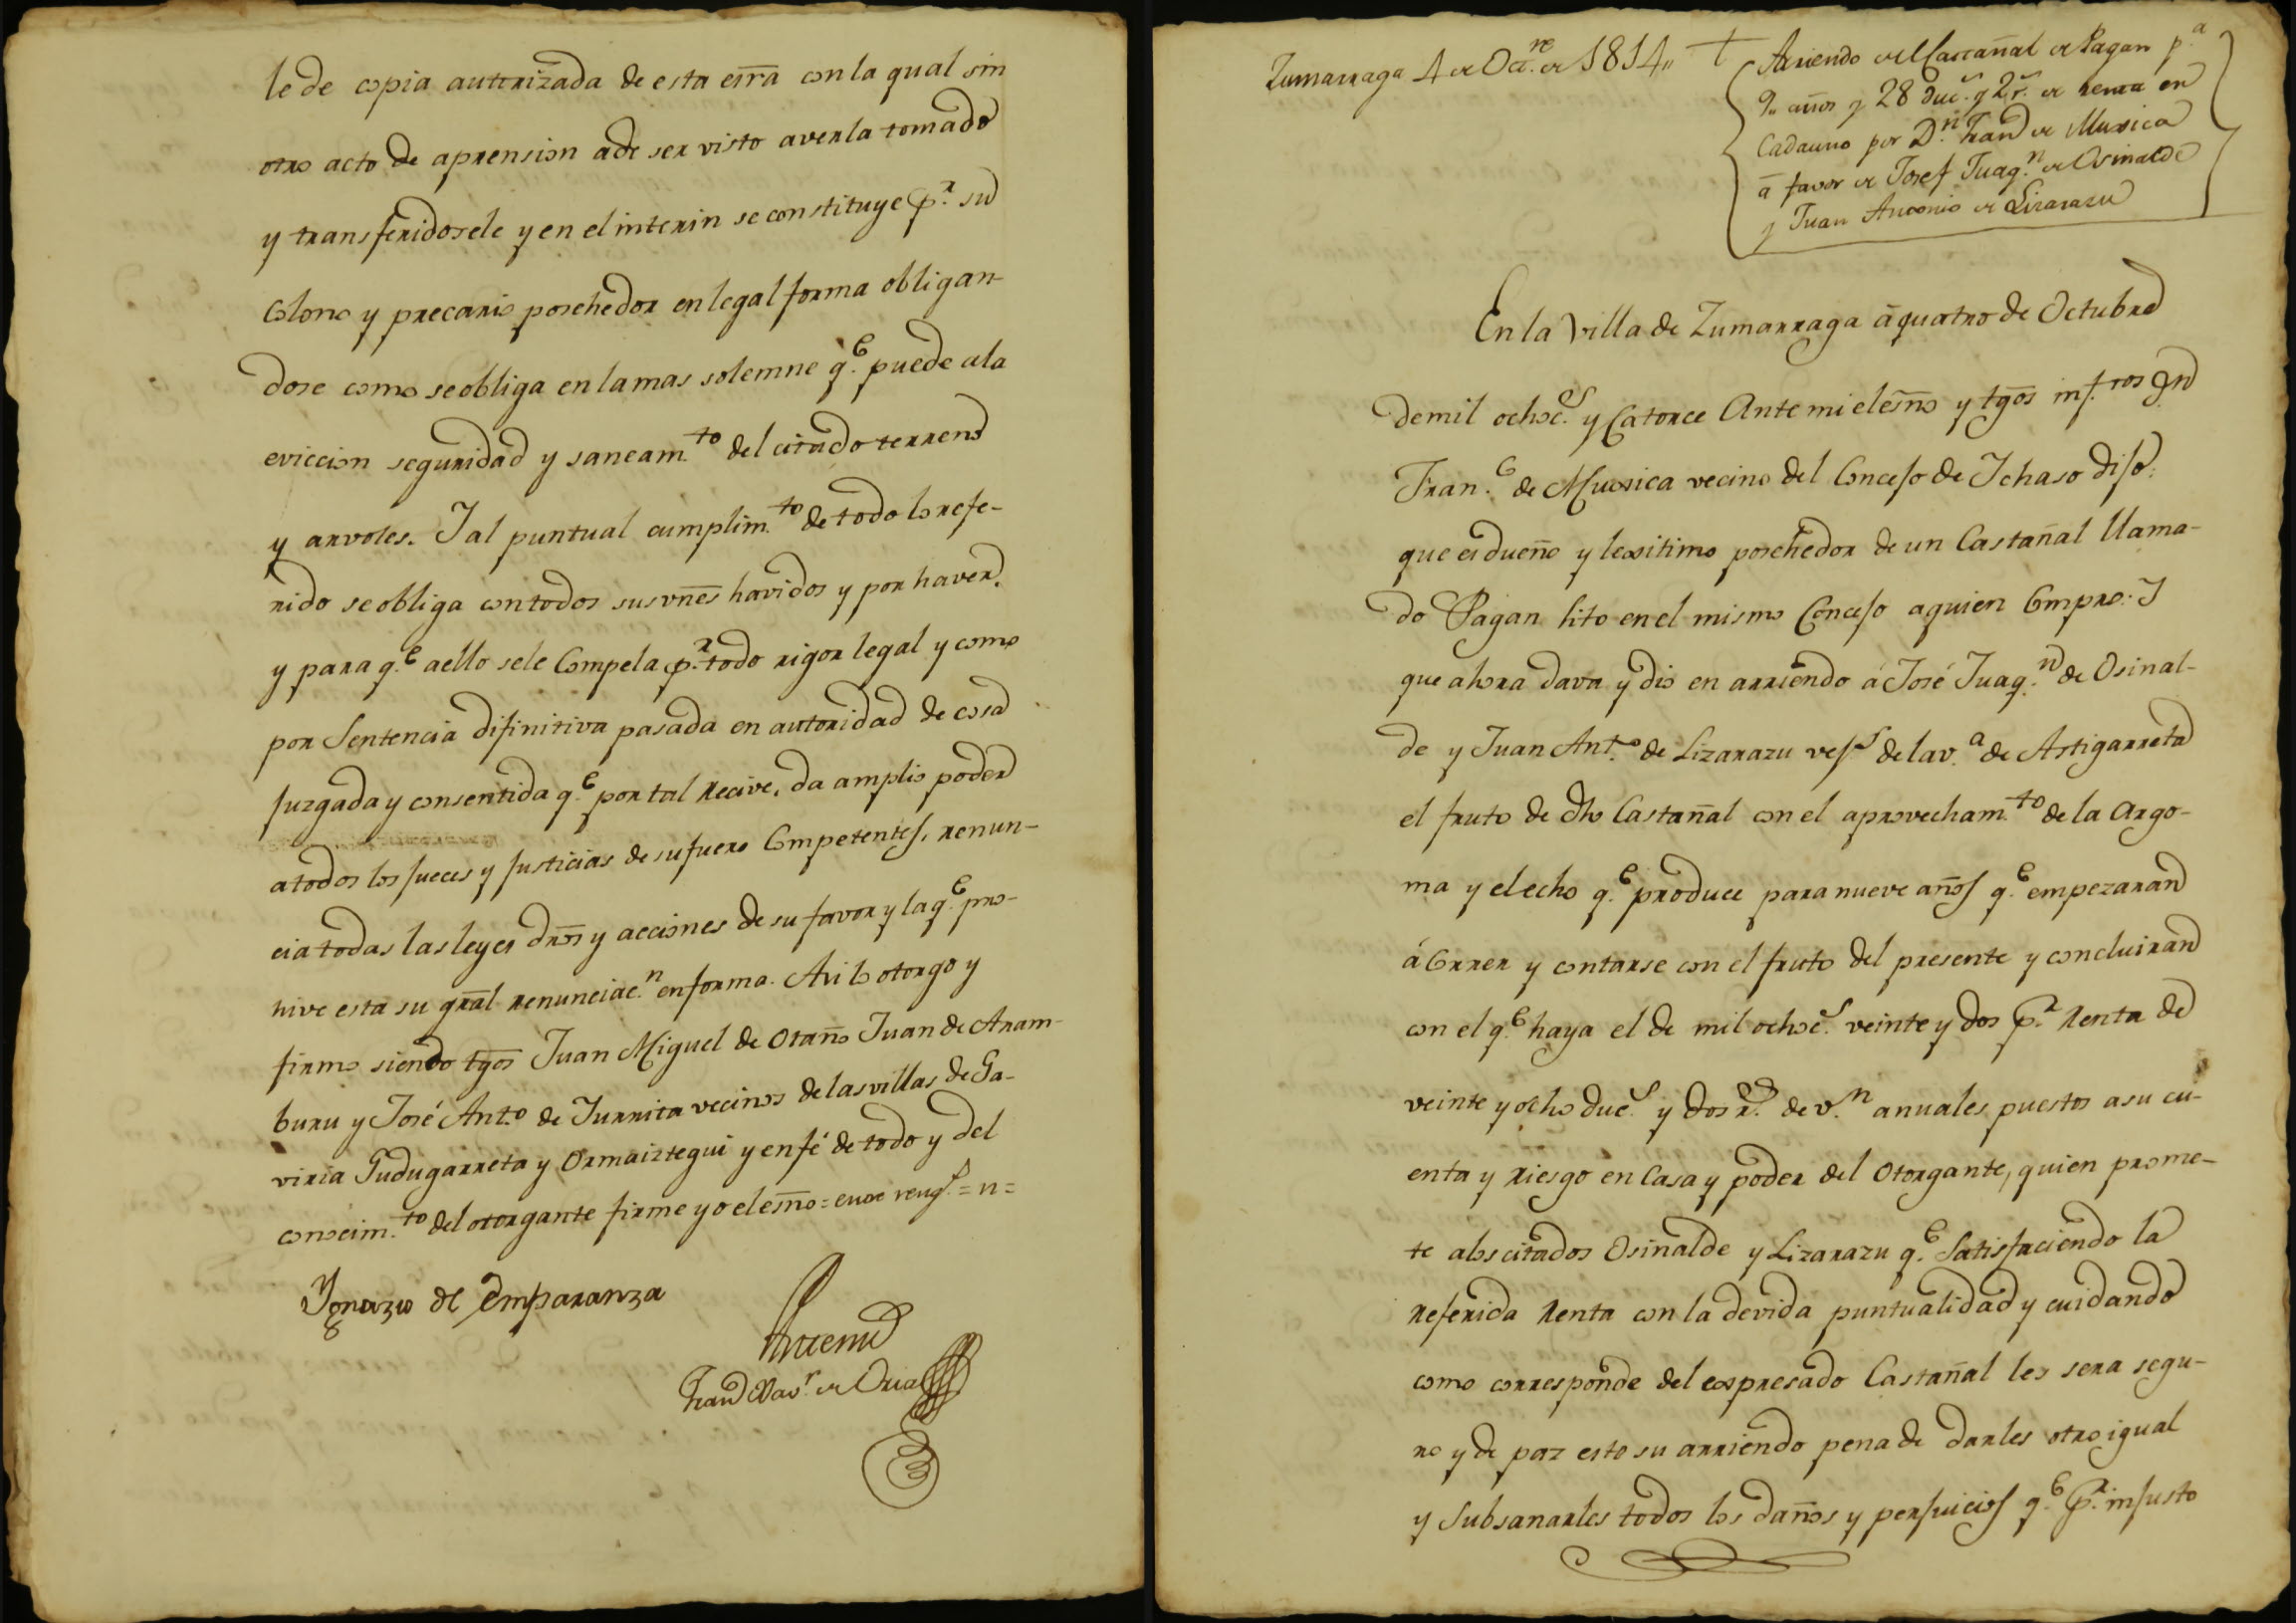 le de copia autorizada de esta esrã con la qual sin
otro acto de aprension ade ser visto averla tomado
y transferidosele y en el interin se constituye p.r su
Colono y precario poschedor en legal forma obligan-
dose como se obliga en la mas solemne q.e puede ala
eviccion seguridad y saneam.to del citado terreno
y arvoles. Y al puntual cumplim.to de todo lo refe-
rido se obliga con todos sus vñes havidos y por haver,
y para q.e aello sele Compela p.r todo rigor legal y como
por Sentencia difinitiva pasada en autoridad de cosa
juzgada y consentida q.e por tal Recive, da amplio poder
a todos los jueces y justicias de su fuero Competentes, renun-
cia todas las leyes dros y acciones de su favor y la q.e pro-
hive esta su gral renunciac.n en forma. Asi lo otorgo y
firmo siendo tgos Juan Miguel de Otaño Juan de Aram-
buru y José Ant.o de Iurrita vecinos de las villas de Ga-
viria Gudugarreta y Ormaiztegui y en fé de todo y del
conocim.to del otorgante firme yo el esño = entre reng.s = n =
Ygnazio de Emparanza
Antemi
Fran.co Xav.r de Oria
Zumarraga 4 de Oct.re de 1814,,
Arriendo del Castañal de Pagan p.a
9,, años y 28 duc.s y 2 r.s de renta en
Cadauno por D.n Fran.co de Muxica
á favor de Josef Juaq.n de Osinalde
y Juan Antonio de Lizarazu
En la Villa de Zumarraga á quatro de Octubre
de mil ochoc.s y Catorce Ante mi el esño y tgos inf.ros Dn
Fran.co de Muxica vecino del Concejo de Ichaso dijo:
que es dueño y lexitimo poschedor de un Castañal llama-
do Pagan sito en el mismo Concejo a quien Compro: Y
que ahora dava y dio en arriendo á José Juaq.n de Osinal-
de y Juan Ant.o de Lizarazu ves.s de la v.a de Astigarreta
el fruto de dho Castañal con el aprovecham.to de la Argo-
ma y elecho q.e produce para nueve años q.e empezaran
á Correr y contarse con el fruto del presente y concluiran
con el q.e haya el de mil ochoc.s veinte y dos p.r Renta de
veinte y ocho duc.s y dos r.s de v.n anuales, puestos a su cu-
enta y riesgo en Casa y poder del Otorgante, quien prome-
te alos citados Osinalde y Lizarazu q.e Satisfaciendo la
Referida Renta con la devida puntualidad y cuidando
como corresponde del expresado Castañal les sera segu-
ro y de paz esto su arriendo pena de darles otro igual
y Subsanarles todos los daños y perjuicios q.e p.r injusto